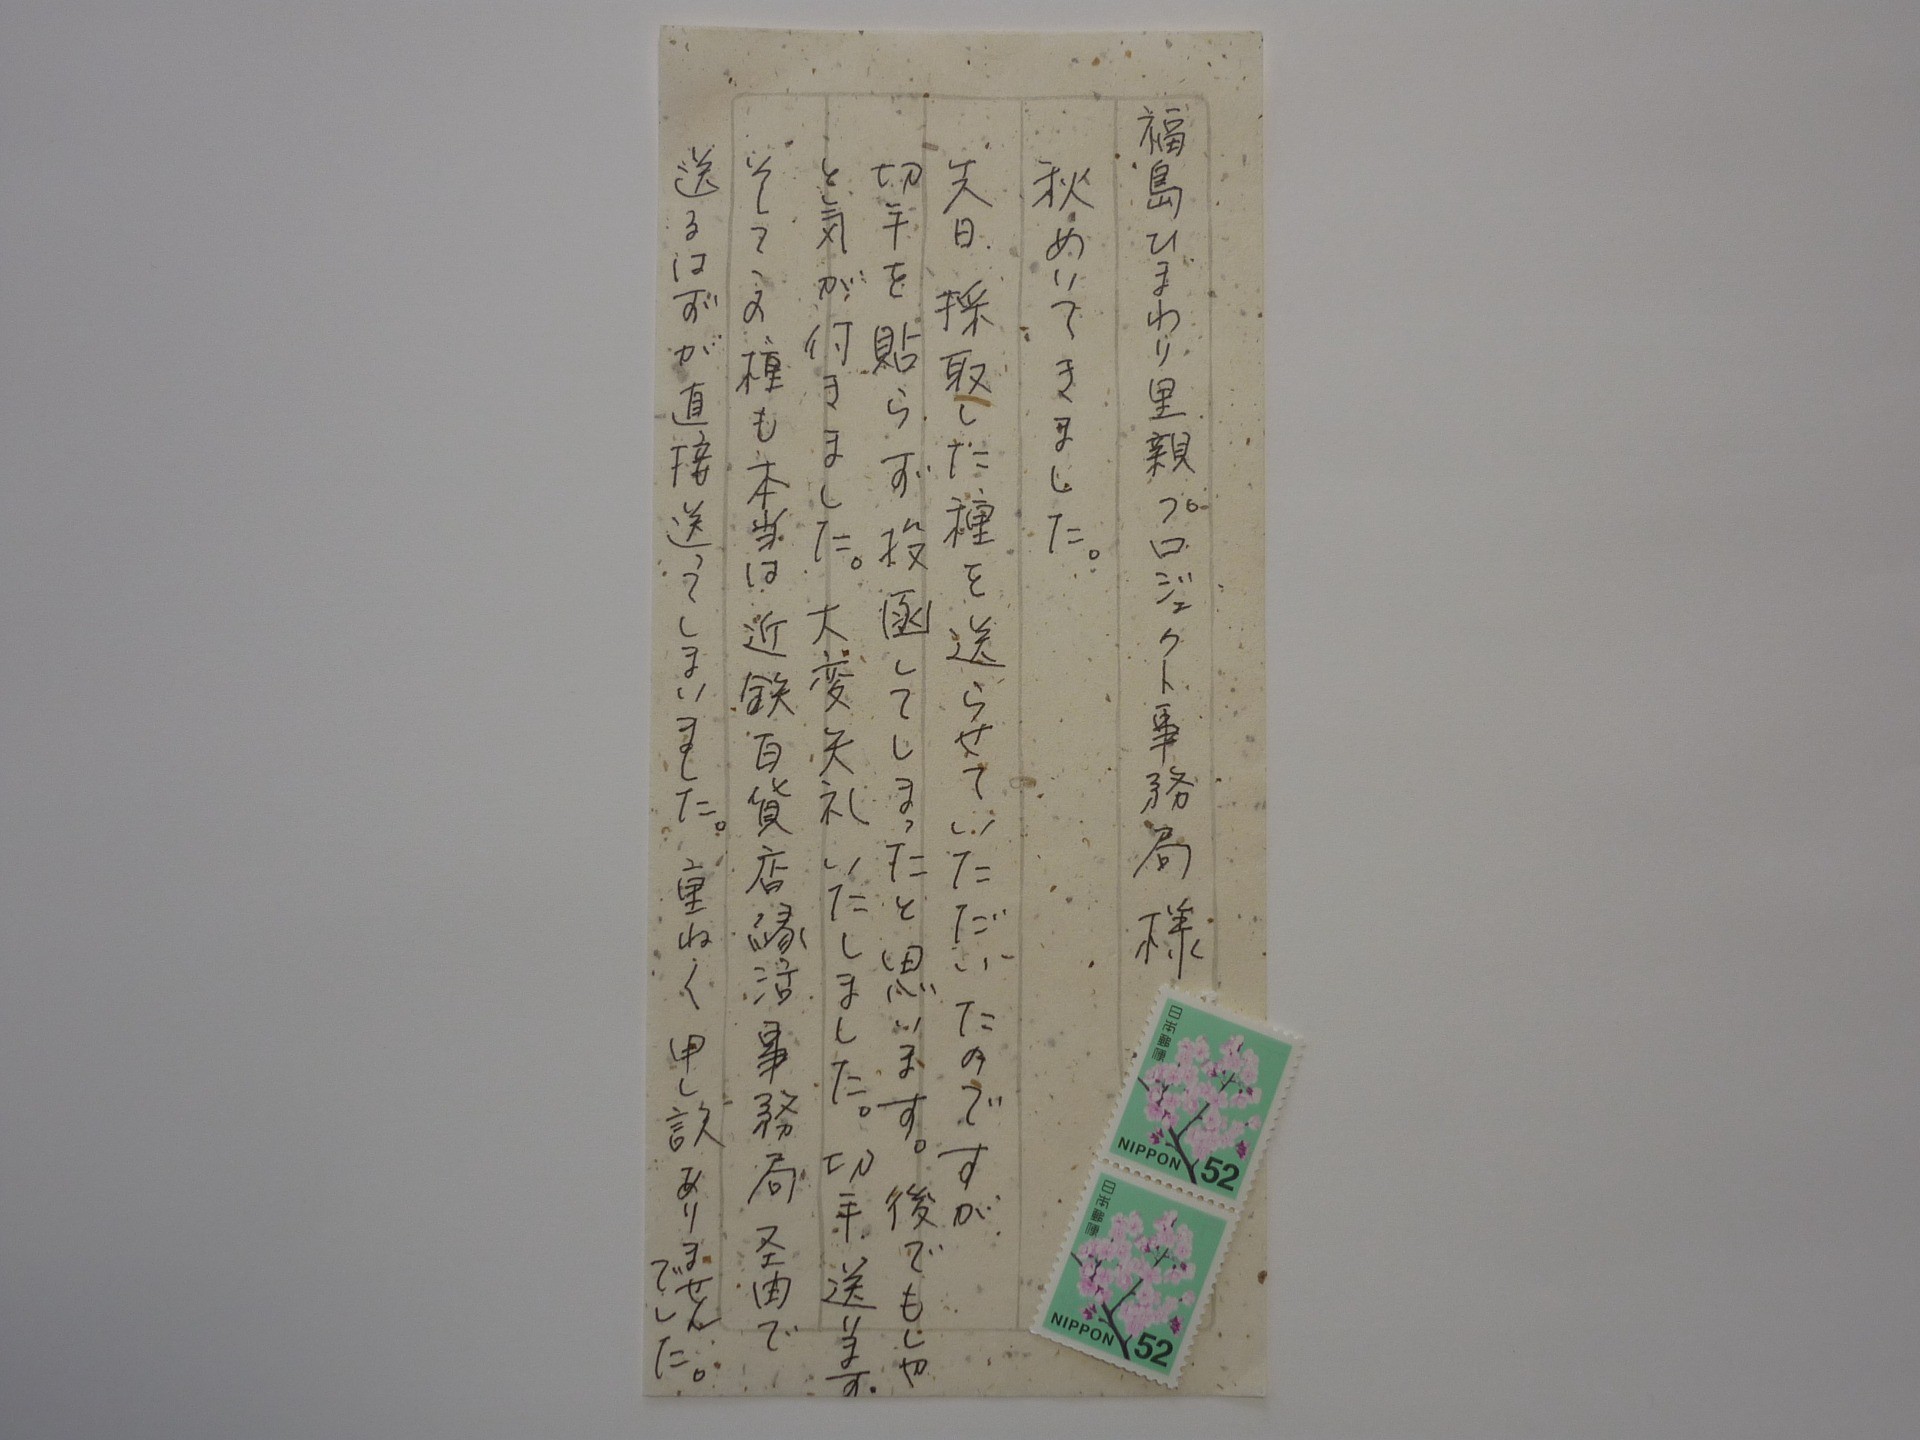 福島ひまわり里親プロジェクト事務局 様
秋めいてきました。
先日、採取した種を送らせていただいたのですが
切手を貼らず投函してしまったと思います。後でもしや
と気が付きました。大変失礼いたしました。切手送ります。
そしてその種も本当は近鉄百貨店縁活事務局経由で
送るはずが直接送ってしまいました。重ねく申し訳ありません
でした。
日本郵便
NIPPON 52
日本郵便
NIPPON 52